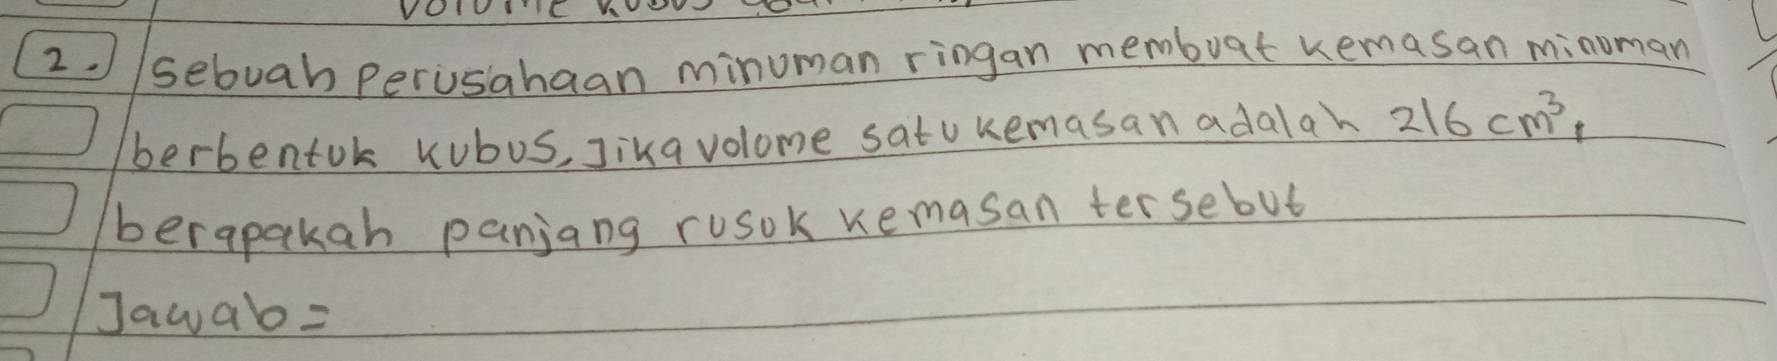 2. Sebuah perusahaan minuman ringan membuat kemasan minuman
berbentuk kubus, Jika volome satu kemasan adalah 216 cm³,
berapakah panjang rusuk kemasan tersebut
Jawab =